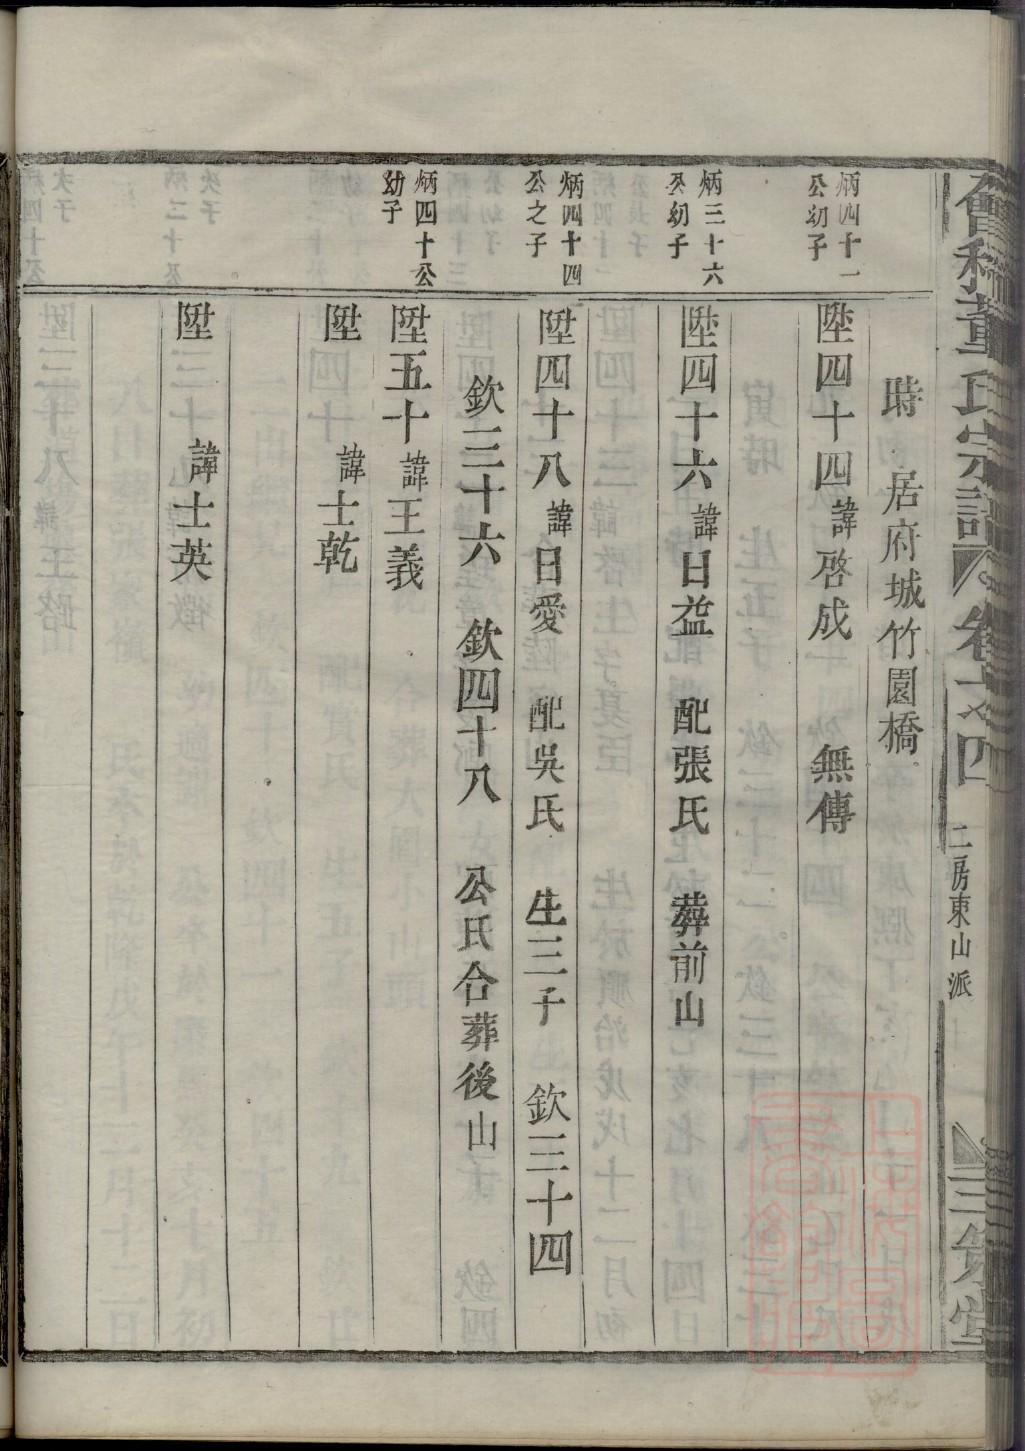 會稽董氏宗譜 卷之四 二房東山派 三策堂
時 居府城竹園橋
炳四十一
公幼子
陞四十四 諱啓成 無傳
炳三十六
公幼子
陞四十六 諱日益 配張氏 葬前山
炳四十四
公之子
陞四十八 諱日愛 配吳氏 生三子 欽三十四
欽三十六 欽四十八 公氏合葬後山
炳四十公
幼子
陞五十 諱王義
陞 諱士乾
陞 諱士英